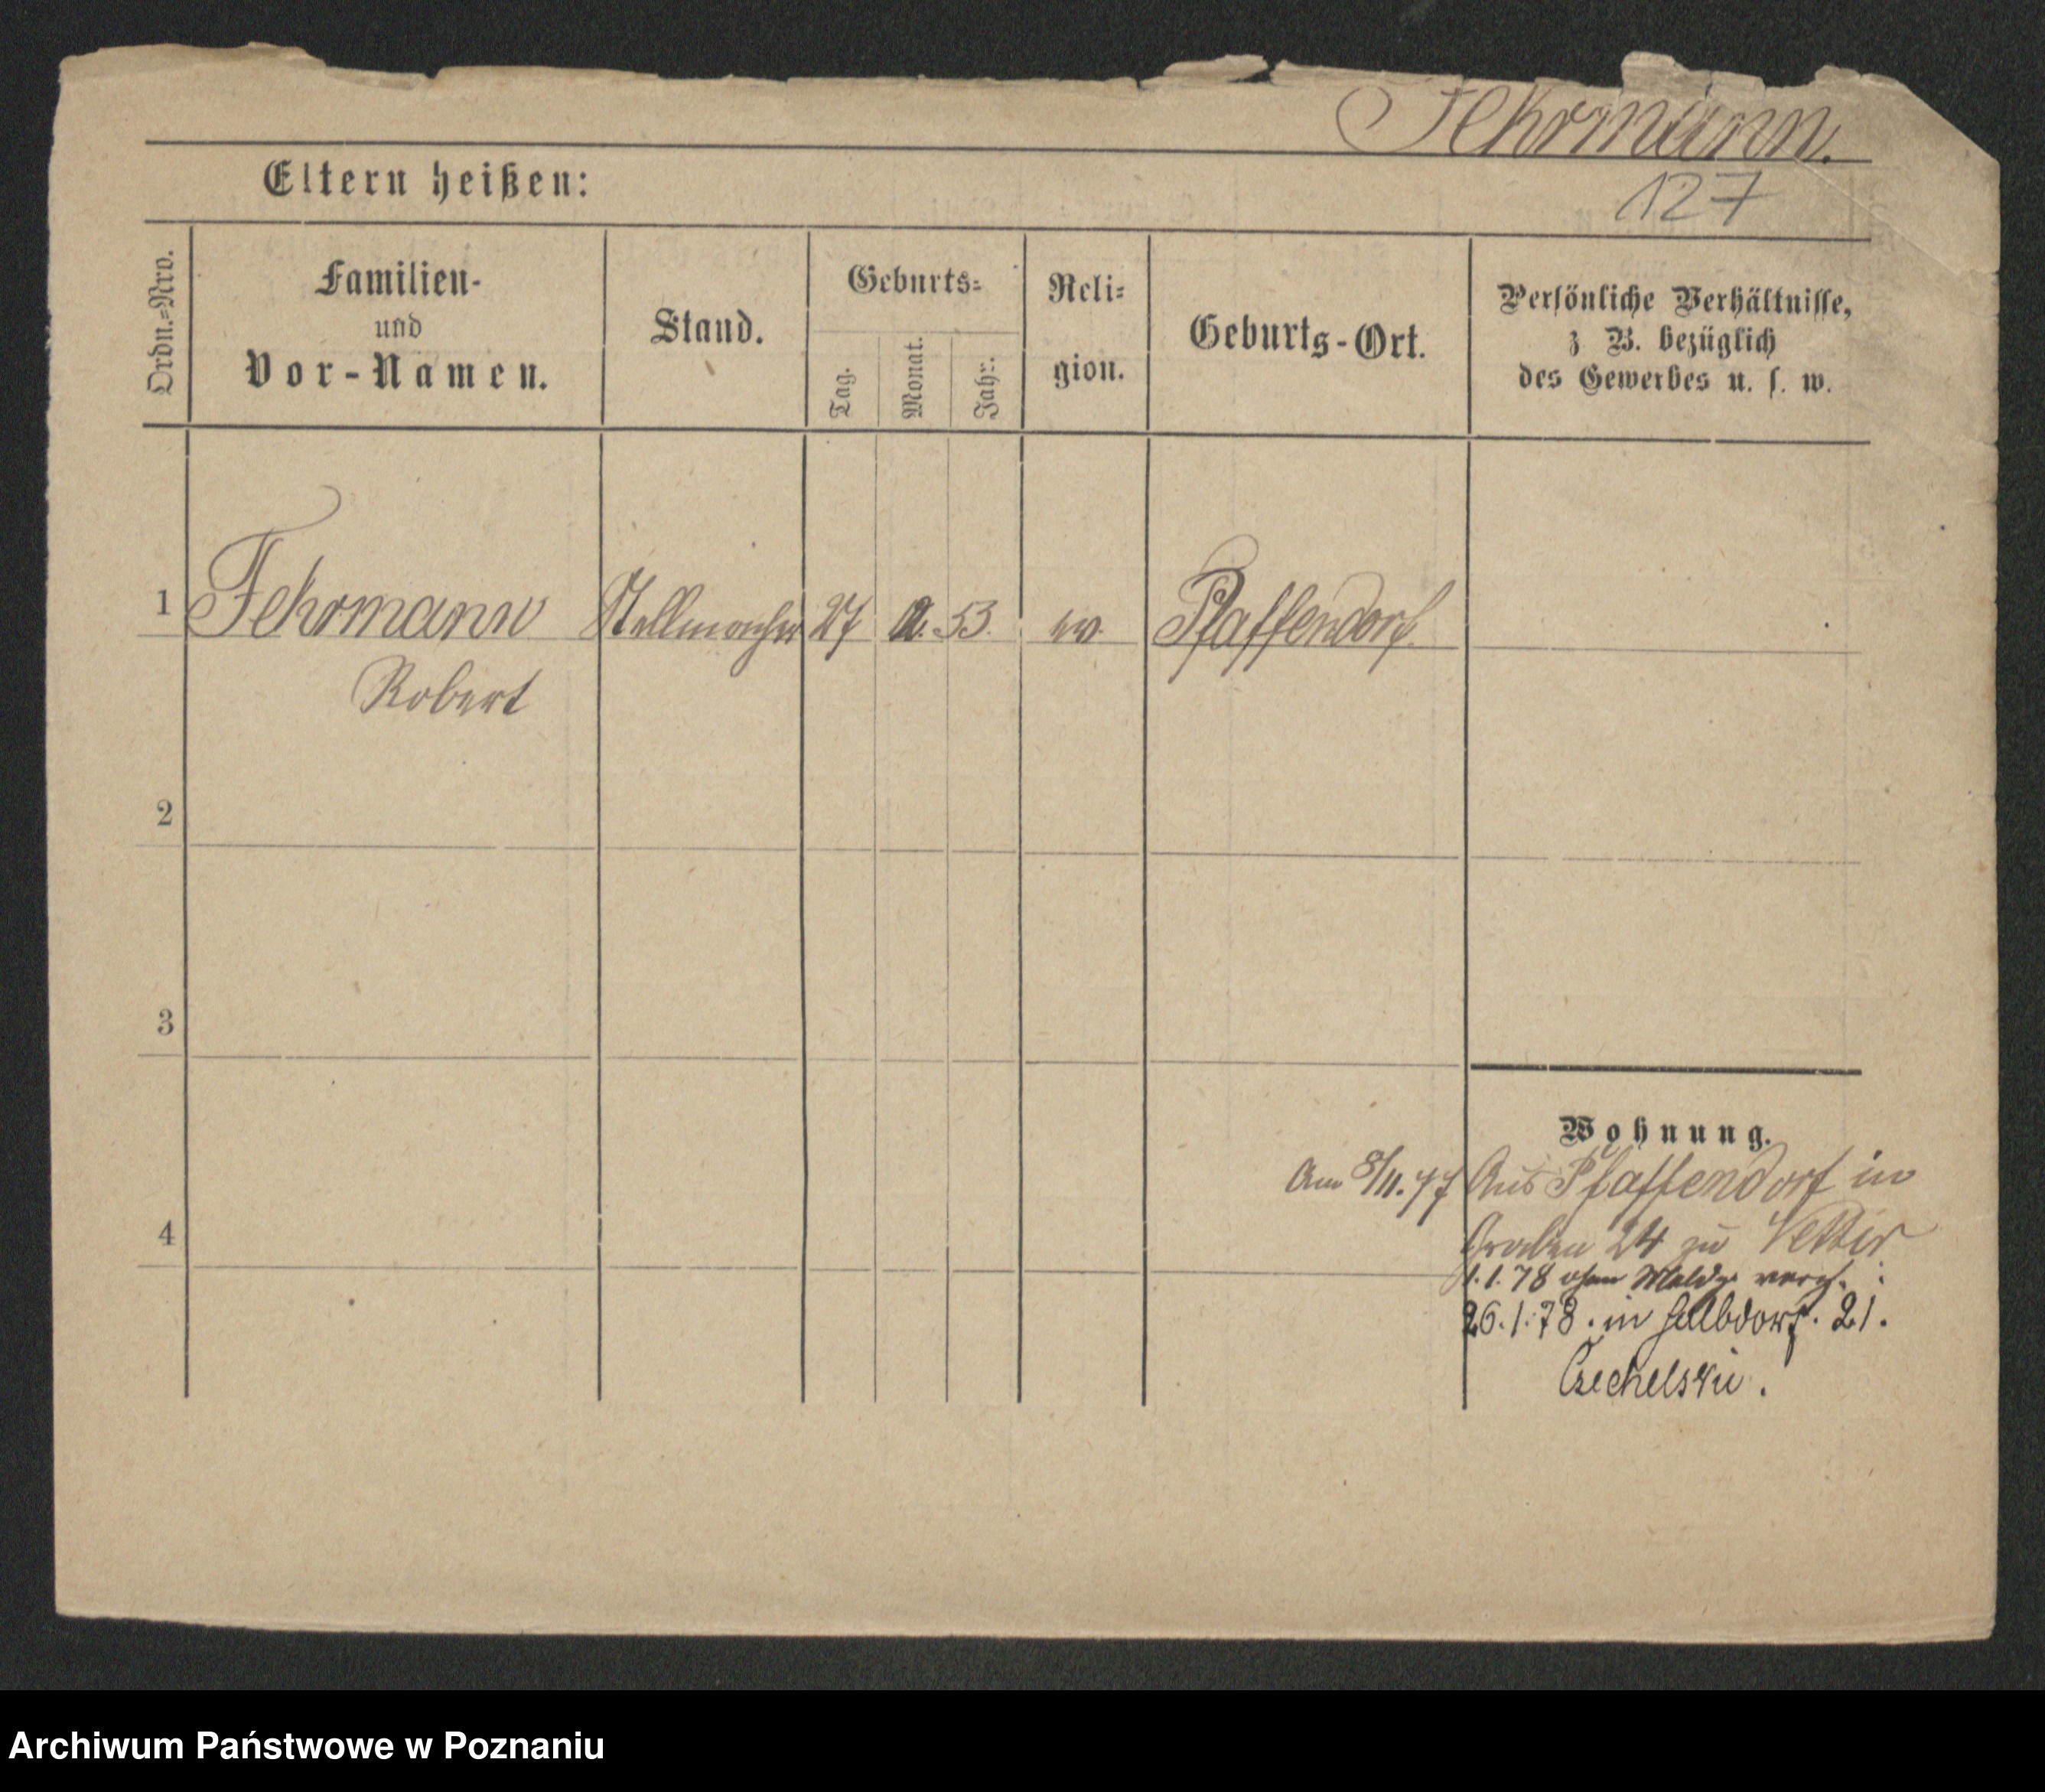 Fehrmann.
127
Eltern heißen:
Ordn.=Nro.
Familien-
und
Vor-Namen.
Stand.
Geburts=
Tag.
Monat.
Jahr.
Reli=
gion.
Geburts-Ort.
Persönliche Verhältnisse,
z B. bezüglich
des Gewerbes u. s. w.
1 Fehrmann Stellmacher 27 53. ev. Pfaffendorf.
Robert
2
3
Wohnung.
Am 8/11. 77 Aus Pfaffendorf in
4
Graben 24 zu Vetter
1.1.78 ohne Meldg. verz.
26.1.78. in Halbdorf. 21.
Czechelski.
Archiwum Państwowe w Poznaniu